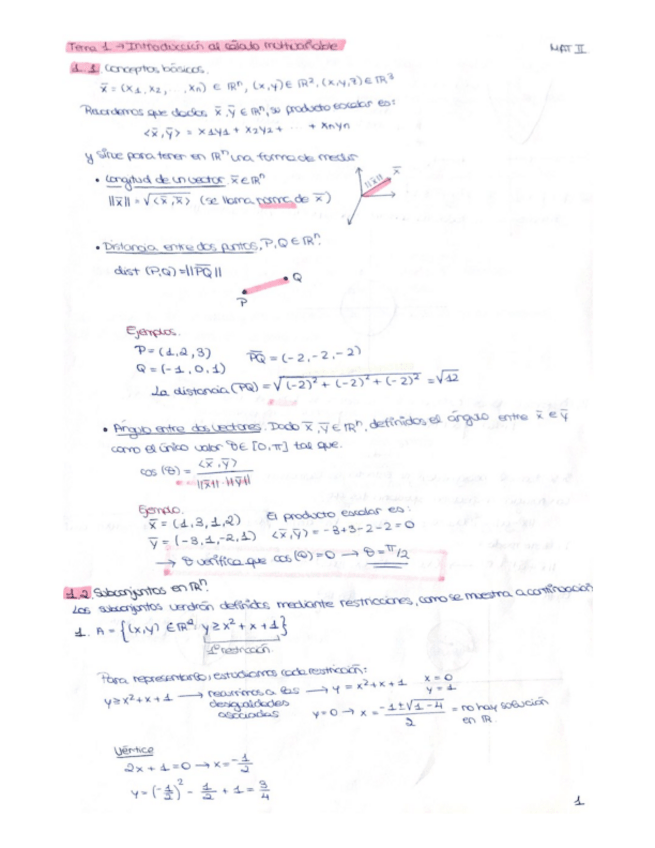 Tema 1 → Introducción al cálculo multivariable
MAT II
1.1 Conceptos básicos.
x̄ = (x1, x2, ..., xn) ∈ ℝⁿ, (x,y) ∈ ℝ², (x,y,z) ∈ ℝ³
Recordemos que dados x̄, ȳ ∈ ℝⁿ, su producto escalar es:
<x̄,ȳ> = x1y1 + x2y2 + ... + xnyn
y sirve para tener en ℝⁿ una forma de medir
• Longitud de un vector x̄ ∈ ℝⁿ
||x̄|| = √<x̄,x̄> (se llama norma de x̄)
||x̄||
x̄
• Distancia entre dos puntos, P,Q ∈ ℝⁿ:
dist (P,Q) = ||P̅Q̅||
Q
P
Ejemplos.
P = (1,2,3)
P̅Q̅ = (-2,-2,-2)
Q = (-1,0,1)
La distancia (PQ) = √(-2)² + (-2)² + (-2)² = √12
• Ángulo entre dos vectores. Dado x̄, ȳ ∈ ℝⁿ, definidos el ángulo entre x̄ e ȳ
como el único valor θ ∈ [0,π] tal que.
cos (θ) = <x̄,ȳ> / ||x̄||·||ȳ||
Ejemplo.
El producto escalar es:
x̄ = (1,3,1,2)
<x̄,ȳ> = -3+3-2-2=0
ȳ = (-3,1,-2,1)
→ θ verifica que cos(θ)=0 → θ=π/2
1.2 Subconjuntos en ℝⁿ.
Los subconjuntos vendrán definidos mediante restricciones, como se muestra a continuación
1. A = {(x,y) ∈ ℝ²: y ≥ x² + x + 1}
1ª restricción.
Para representarlo, estudiamos cada restricción:
y ≥ x² + x + 1 → recurrimos a las desigualdades asociadas → y = x² + x + 1
x = 0
y = 1
y=0 → x = -1±√1-4 / 2 = no hay solución en ℝ.
Vértice
2x + 1 = 0 → x = -1/2
y = (-1/2)² - 1/2 + 1 = 3/4
1